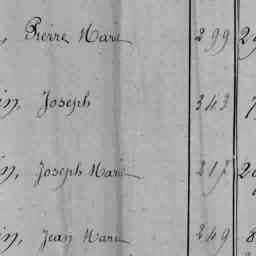 , Pierre Marie 299 2
in, Joseph 343 7
in, Joseph Marie 217 2
in, Jean Marie 249 8